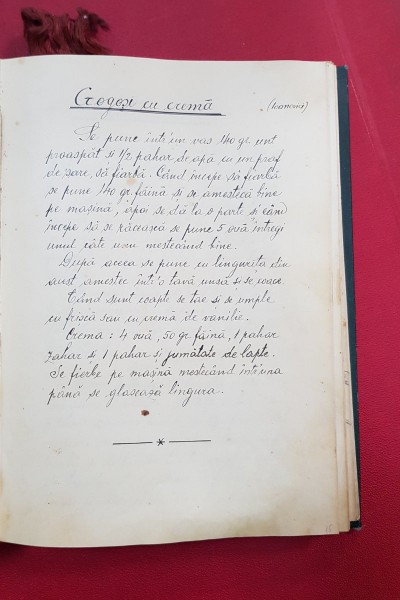 Gogoși cu cremă (Ioanovici)
Se pune într'un vas 140 gr. unt
proaspăt și 1/2 pahar de apă cu un praf
de sare, să fiarbă. Când începe să fiarbă
se pune 140 gr. făină și se amestecă bine
pe mașină, apoi se dă la o parte și când
începe să se răcească se pune 5 ouă întregi
unul câte unu mestecând bine.
După aceea se pune cu lingurița din
acest amestec într'o tavă unsă și se coace.
Când sunt coapte se tae și se umple
cu frișcă sau cu cremă de vanilie.
Crema: 4 ouă, 50 gr. făină, 1 pahar
zahar și 1 pahar și jumătate de lapte.
Se fierbe pe mașină mestecând într'una
până se glasează lingura.